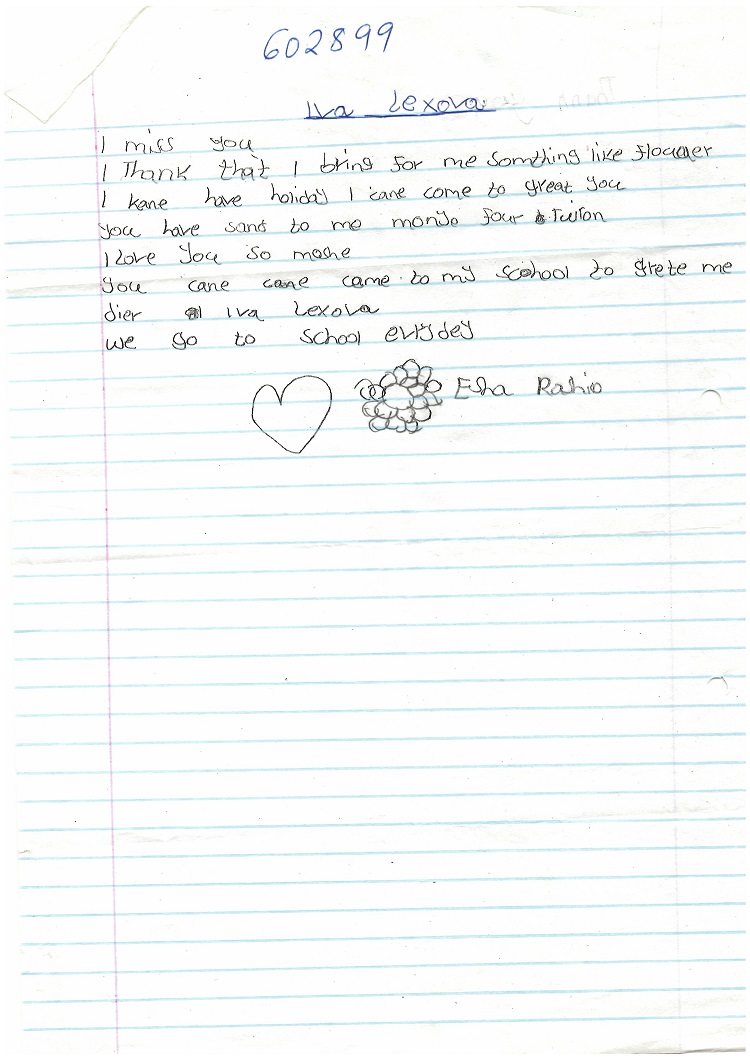 602899
Iva Lexova
I miss you
I Thank that I bring for me somthing like flouwer
I kane have holiday I cane come to great you
you have sant to me monye four Tution
I Love you so mache
you cane cane came to my school to grete me
dier Iva Lexova
we go to school evrydey
Esha Rahio